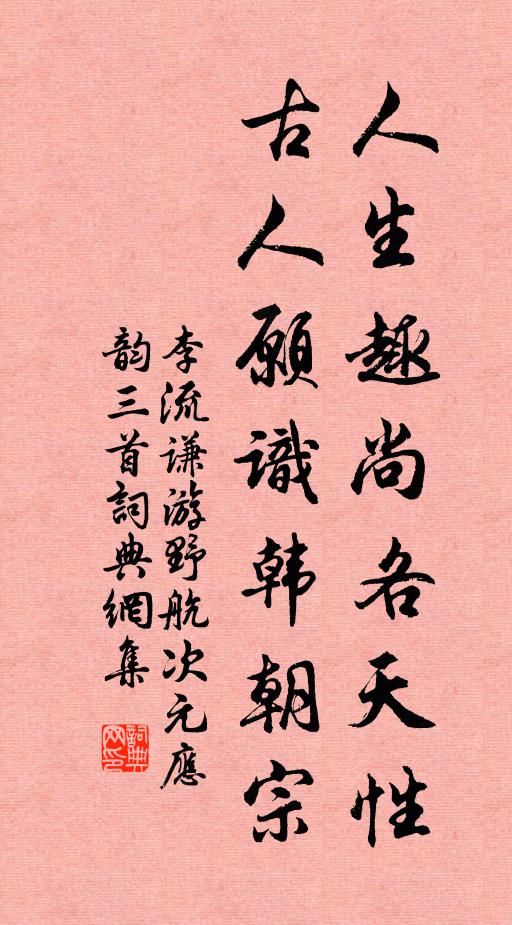 人生趣尚各天性
古人願識韩朝宗
李流谦游野航次元應
韵三首詞典網集
詞典
网印